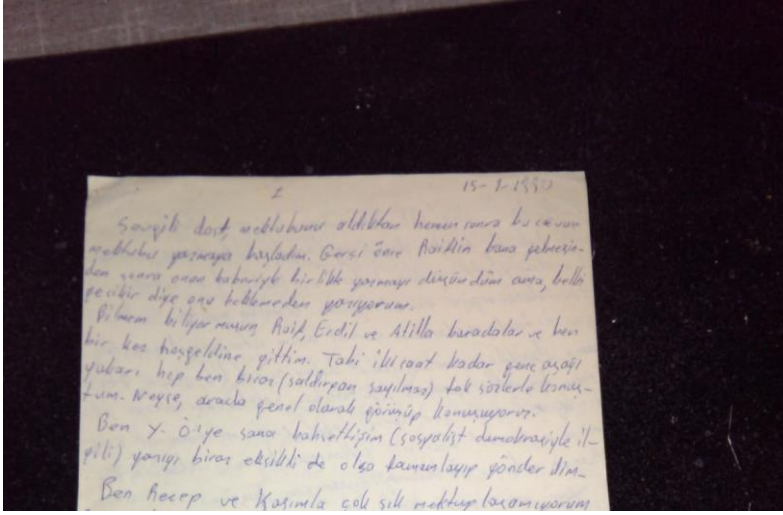 1 15-1-1990
Sevgili dost, mektubunu aldıktan hemen sonra bu cevap
mektubu yazmaya başladım. Gerçi önce Raifin bana gelmesin-
den sonra onun haberiyle birlikte yazmayı düşündüm ama, belki
gecikir diye onu beklemeden yazıyorum.
Bilmem biliyor musun Raif, Erdil ve Atilla buradalar ve ben
bir kez hoşgeldine gittim. Tabi iki saat kadar gene aşağı
yukarı hep ben biraz (saldırgan sayılmaz) tok sözlerle konuş-
tum. Neyse, arada genel olarak görüşüp konuşuyoruz.
Ben Y. Ö.'ye sana bahsettiğim (sosyalist demokrasiyle il-
gili) yazıyı biraz eksikli de olsa tamamlayıp gönderdim.
Ben Recep ve Kasımla çok sık mektuplaşamıyorum